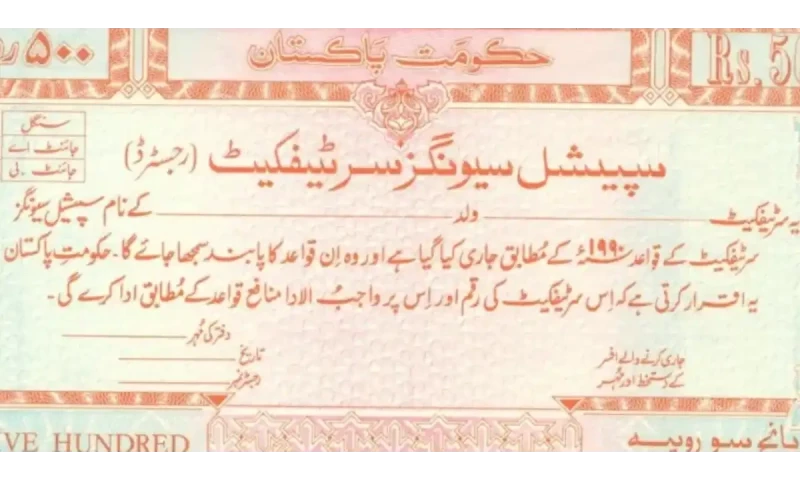 ۵۰۰ حکومت پاکستان Rs. 50
سنگل
جائنٹ اے
جائنٹ ۔ بی
سپیشل سیونگز سرٹیفکیٹ (رجسٹرڈ)
یہ سرٹیفکیٹ ولد کے نام سپیشل سیونگز
سرٹیفکیٹ کے قواعد سنہ ۱۹۹۰ء کے مطابق جاری کیا گیا ہے اور وہ اِن قواعد کا پابند سمجھا جائے گا۔ حکومتِ پاکستان
یہ اقرار کرتی ہے کہ اِس سرٹیفکیٹ کی رقم اور اِس پر واجبُ الادا منافع قواعد کے مُطابق ادا کرے گی۔
دفتر کی مُہر
جاری کرنے والے افسر تاریخ
کے دستخط اور مُہر رجسٹر نمبر
VE HUNDRED پانچ سو روپیہ